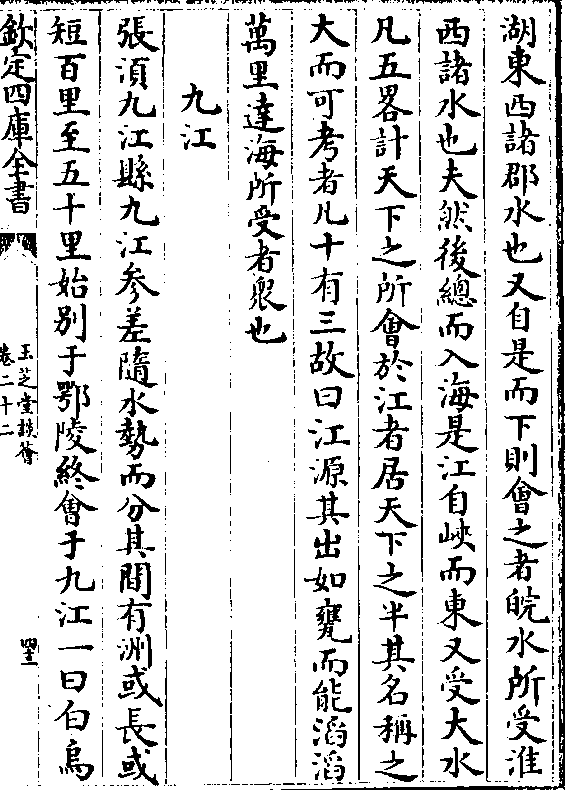 湖東西諸郡水也又自是而下則會之者皖水所受淮
西諸水也夫然後總而入海是江自峽而東又受大水
凡五畧計天下之所會於江者居天下之半其名稱之
大而可考者凡十有三故曰江源其出如甕而能滔滔
萬里達海所受者衆也
九江
張湏九江縣九江參差隨水勢而分其間有洲或長或
短百里至五十里始别于鄂陵終會于九江一曰白烏
欽定四庫全書
玉芝堂談薈
卷二十二